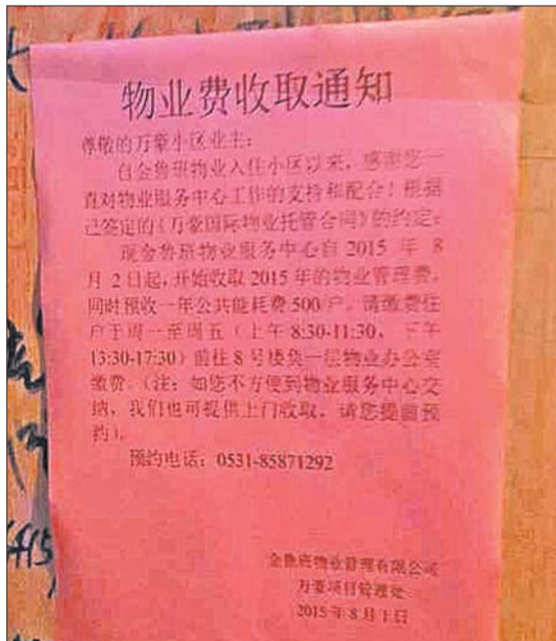 物业费收取通知
尊敬的万豪小区业主：
自金鲁班物业入住小区以来，感谢您一
直对物业服务中心工作的支持和配合！根据
已签定的《万豪国际物业托管合同》的约定：
现金鲁班物业服务中心自 2015 年 8
月 2 日起，开始收取 2015 年的物业管理费，
同时预收一年公共能耗费 500/户。请缴费住
户于周一至周五（上午 8:30-11:30、下午
13:30-17:30）前往 8 号楼负一层物业办公室
缴费。（注：如您不方便到物业服务中心交
纳，我们也可提供上门收取，请您提前预
约）。
预约电话：0531-85871292
金鲁班物业管理有限公司
万豪项目管理处
2015 年 8 月 1 日